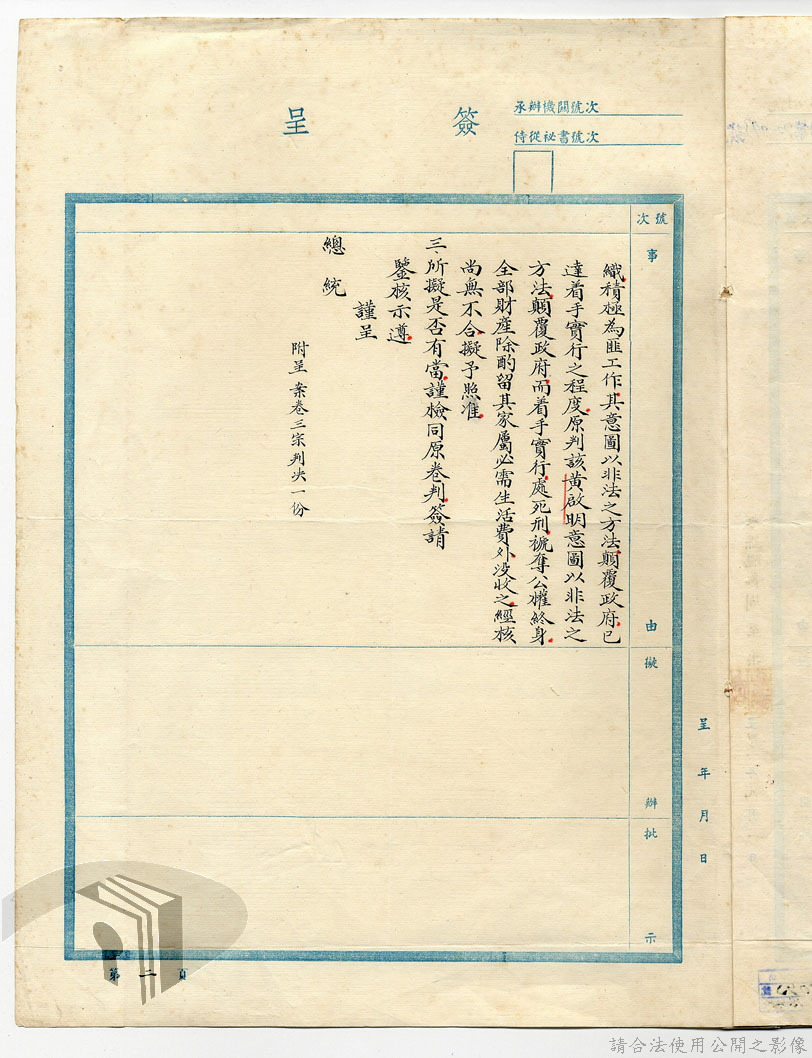 簽呈
承辦機關號次
侍從祕書號次
號次
事由
擬辦
批示
織積極為匪工作其意圖以非法之方法顛覆政府已
達着手實行之程度原判該黃啟明意圖以非法之
方法顛覆政府而着手實行處死刑褫奪公權終身
全部財產除酌留其家屬必需生活費外沒收之經核
尚無不合擬予照准
三、所擬是否有當謹檢同原卷判簽請
鑒核示遵
謹呈
總統
附呈案卷三宗判決一份
呈 年 月 日
第二頁
請合法使用公開之影像